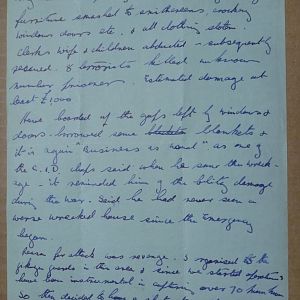 furniture smashed to smithereens, crockery
windows doors etc. & all clothing stolen.
Clerks wife & children abducted – subsequently
rescued. 8 terrorists killed unknown
number prisoner. Estimated damage at
least £1,000
Have boarded up the gaps left by windows &
doors – borrowed some blankets &
it is again "Business as usual" as one of
the C.I.D. chaps said when he saw the wreck-
age – it reminded him of the blitz damage
during the war. Said he had never seen a
worse wrecked house since the Emergency
began.
Reason for attack was revenge. I organised the
guards in this area & since we started operations
have been instrumental in capturing over 70
So they decided to have a